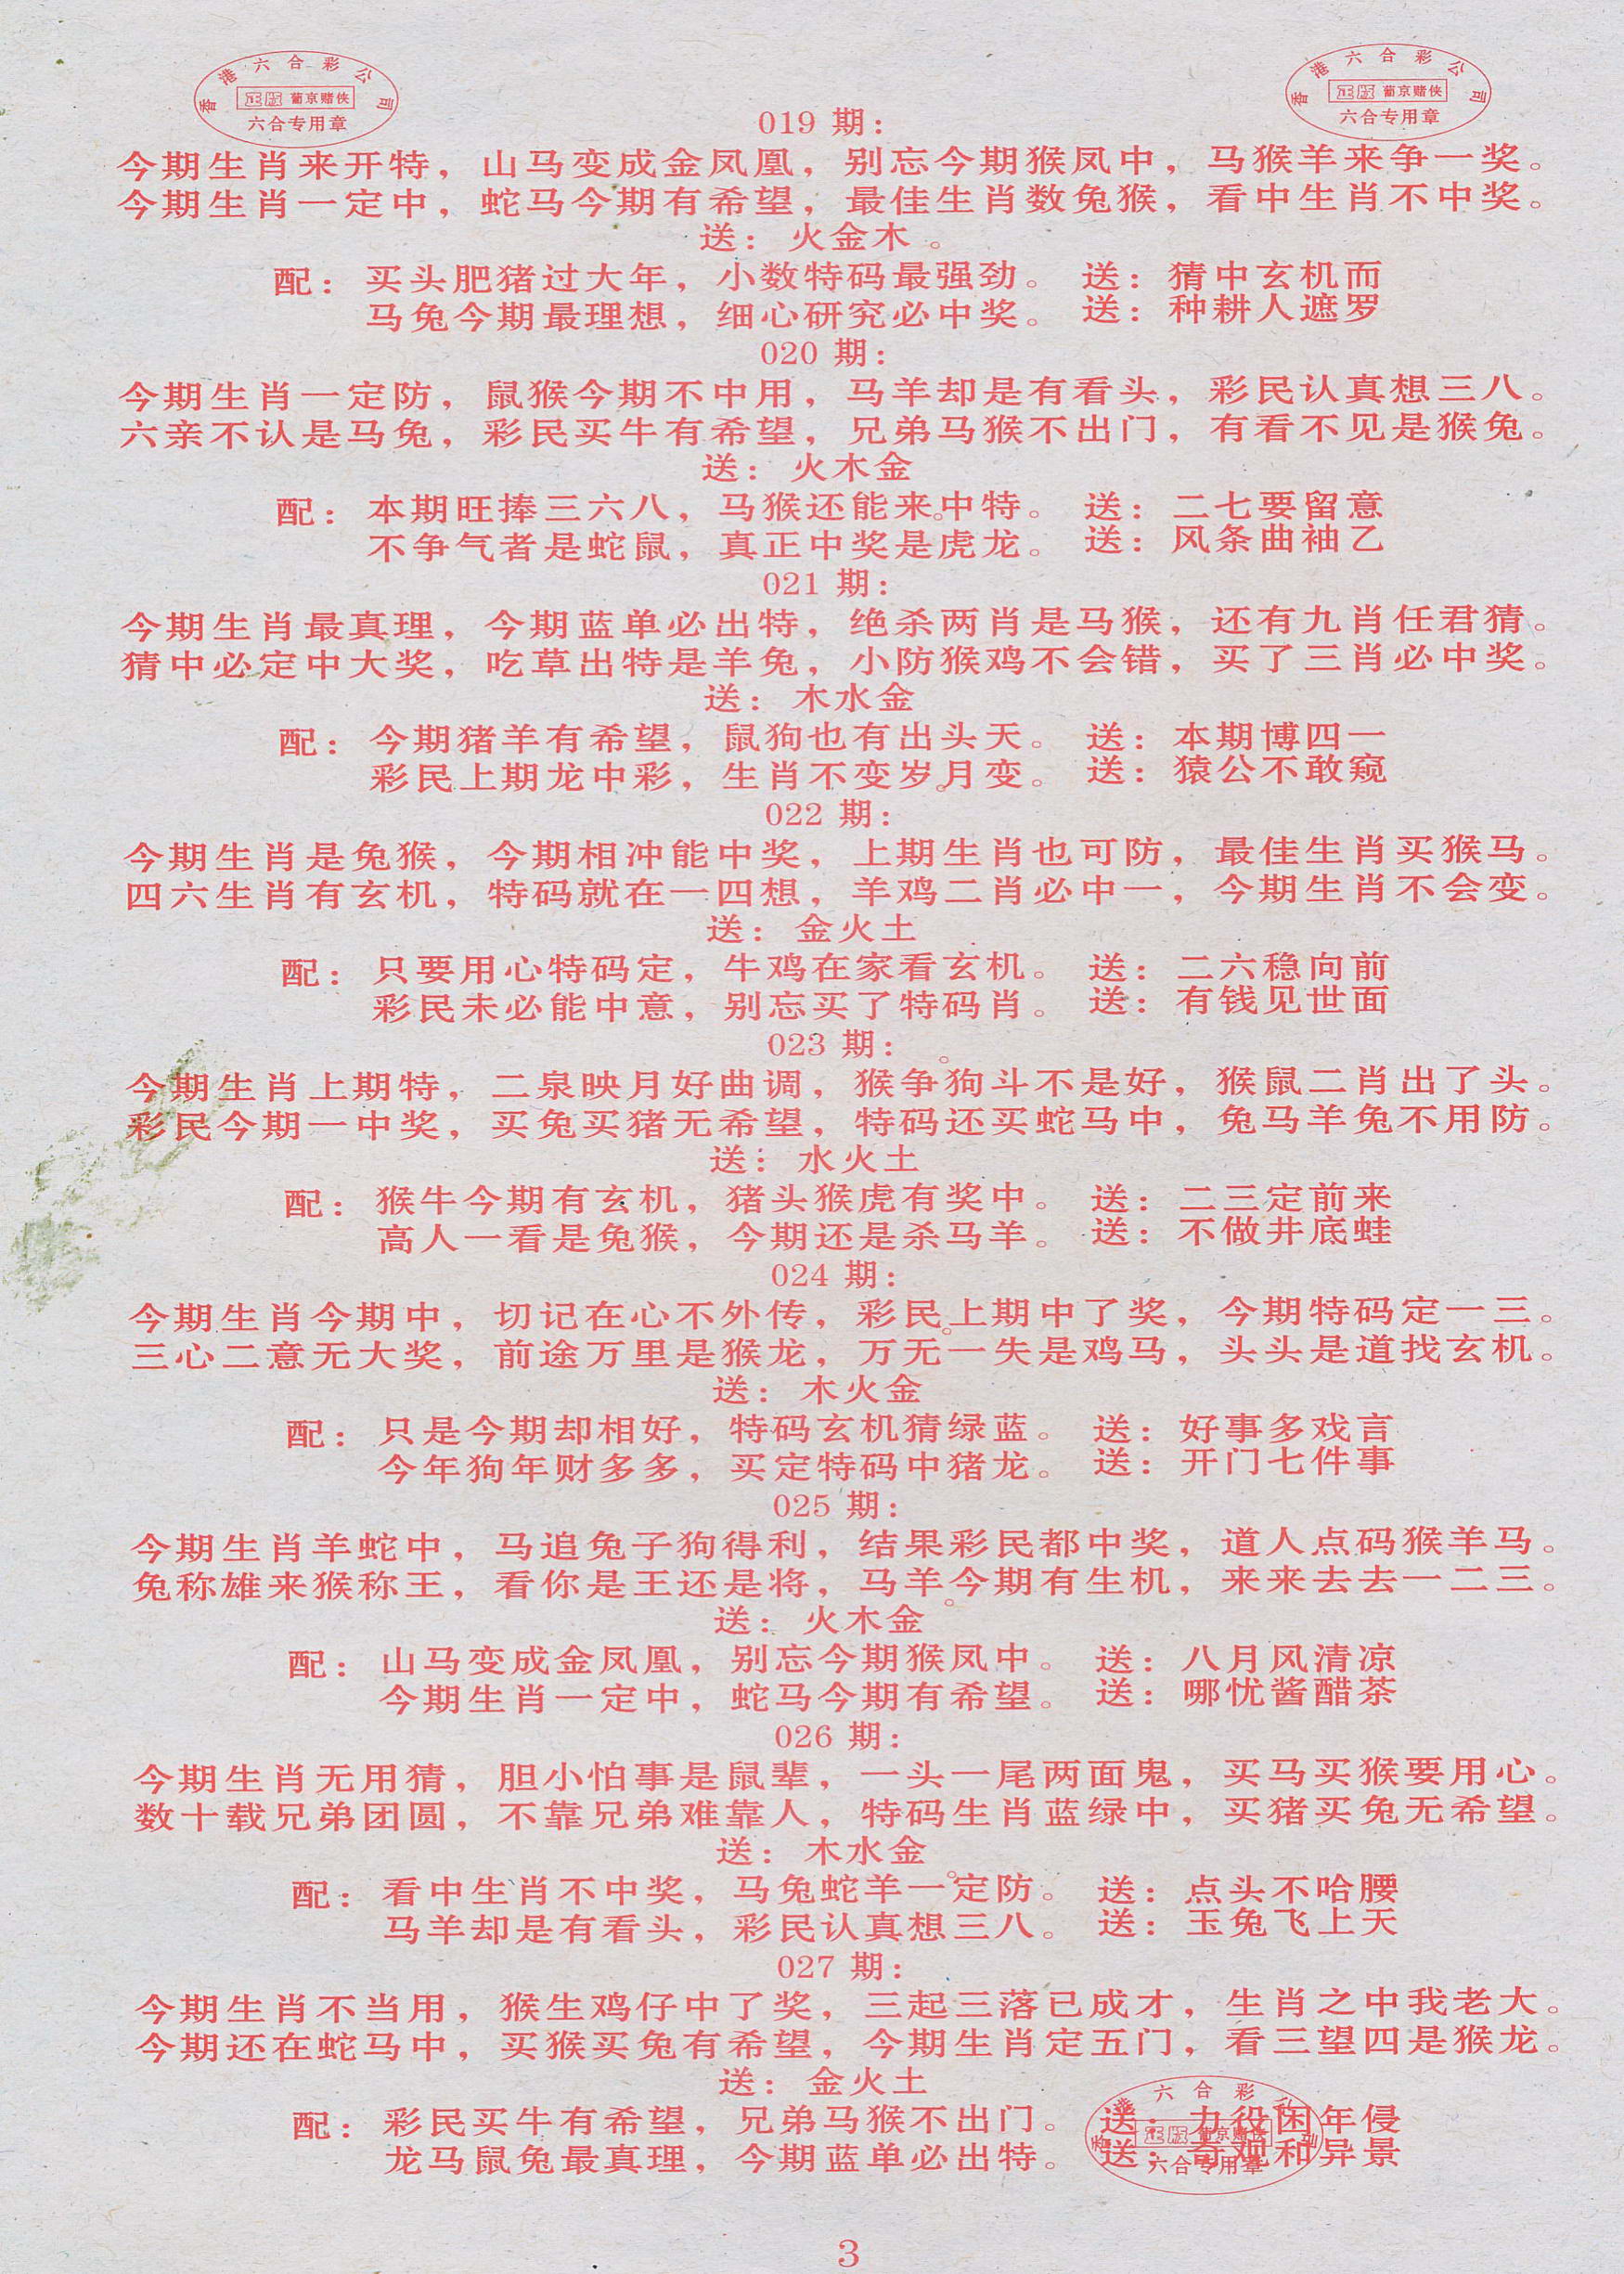 香港六合彩公司
正版 葡京赌侠
六合专用章
香港六合彩公司
正版 葡京赌侠
六合专用章
019 期：
今期生肖来开特，山马变成金凤凰，别忘今期猴凤中，马猴羊来争一奖。
今期生肖一定中，蛇马今期有希望，最佳生肖数兔猴，看中生肖不中奖。
送：火金木。
配：买头肥猪过大年，小数特码最强劲。送：猜中玄机而
马兔今期最理想，细心研究必中奖。送：种耕人遮罗
020 期：
今期生肖一定防，鼠猴今期不中用，马羊却是有看头，彩民认真想三八。
六亲不认是马兔，彩民买牛有希望，兄弟马猴不出门，有看不见是猴兔。
送：火木金
配：本期旺捧三六八，马猴还能来中特。送：二七要留意
不争气者是蛇鼠，真正中奖是虎龙。送：风条曲袖乙
021 期：
今期生肖最真理，今期蓝单必出特，绝杀两肖是马猴，还有九肖任君猜。
猜中必定中大奖，吃草出特是羊兔，小防猴鸡不会错，买了三肖必中奖。
送：木水金
配：今期猪羊有希望，鼠狗也有出头天。送：本期博四一
彩民上期龙中彩，生肖不变岁月变。送：猿公不敢窥
022 期：
今期生肖是兔猴，今期相冲能中奖，上期生肖也可防，最佳生肖买猴马。
四六生肖有玄机，特码就在一四想，羊鸡二肖必中一，今期生肖不会变。
送：金火土
配：只要用心特码定，牛鸡在家看玄机。送：二六稳向前
彩民未必能中意，别忘买了特码肖。送：有钱见世面
023 期：
今期生肖上期特，二泉映月好曲调，猴争狗斗不是好，猴鼠二肖出了头。
彩民今期一中奖，买兔买猪无希望，特码还买蛇马中，兔马羊兔不用防。
送：水火土
配：猴牛今期有玄机，猪头猴虎有奖中。送：二三定前来
高人一看是兔猴，今期还是杀马羊。送：不做井底蛙
024 期：
今期生肖今期中，切记在心不外传，彩民上期中了奖，今期特码定一三。
三心二意无大奖，前途万里是猴龙，万无一失是鸡马，头头是道找玄机。
送：木火金
配：只是今期却相好，特码玄机猜绿蓝。送：好事多戏言
今年狗年财多多，买定特码中猪龙。送：开门七件事
025 期：
今期生肖羊蛇中，马追兔子狗得利，结果彩民都中奖，道人点码猴羊马。
兔称雄来猴称王，看你是王还是将，马羊今期有生机，来来去去一二三。
送：火木金
配：山马变成金凤凰，别忘今期猴凤中。送：八月风清凉
今期生肖一定中，蛇马今期有希望。送：哪忧酱醋茶
026 期：
今期生肖无用猜，胆小怕事是鼠辈，一头一尾两面鬼，买马买猴要用心。
数十载兄弟团圆，不靠兄弟难靠人，特码生肖蓝绿中，买猪买兔无希望。
送：木水金
配：看中生肖不中奖，马兔蛇羊一定防。送：点头不哈腰
马羊却是有看头，彩民认真想三八。送：玉兔飞上天
027 期：
今期生肖不当用，猴生鸡仔中了奖，三起三落已成才，生肖之中我老大。
今期还在蛇马中，买猴买兔有希望，今期生肖定五门，看三望四是猴龙。
送：金火土
配：彩民买牛有希望，兄弟马猴不出门。送：力役困年侵
龙马鼠兔最真理，今期蓝单必出特。送：奇观和异景
香港六合彩公司
正版 葡京赌侠
六合专用章
3